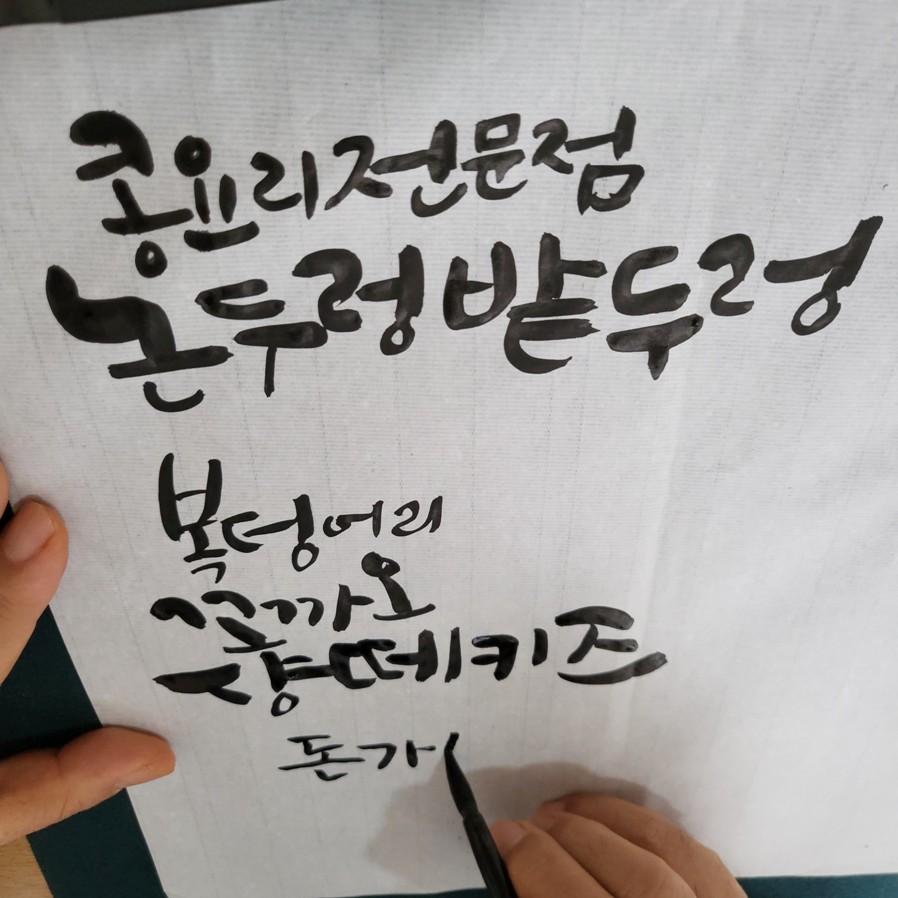 콩요리전문점
논두렁밭두렁
복덩어리
꼬까오
샹떼키즈
돈가